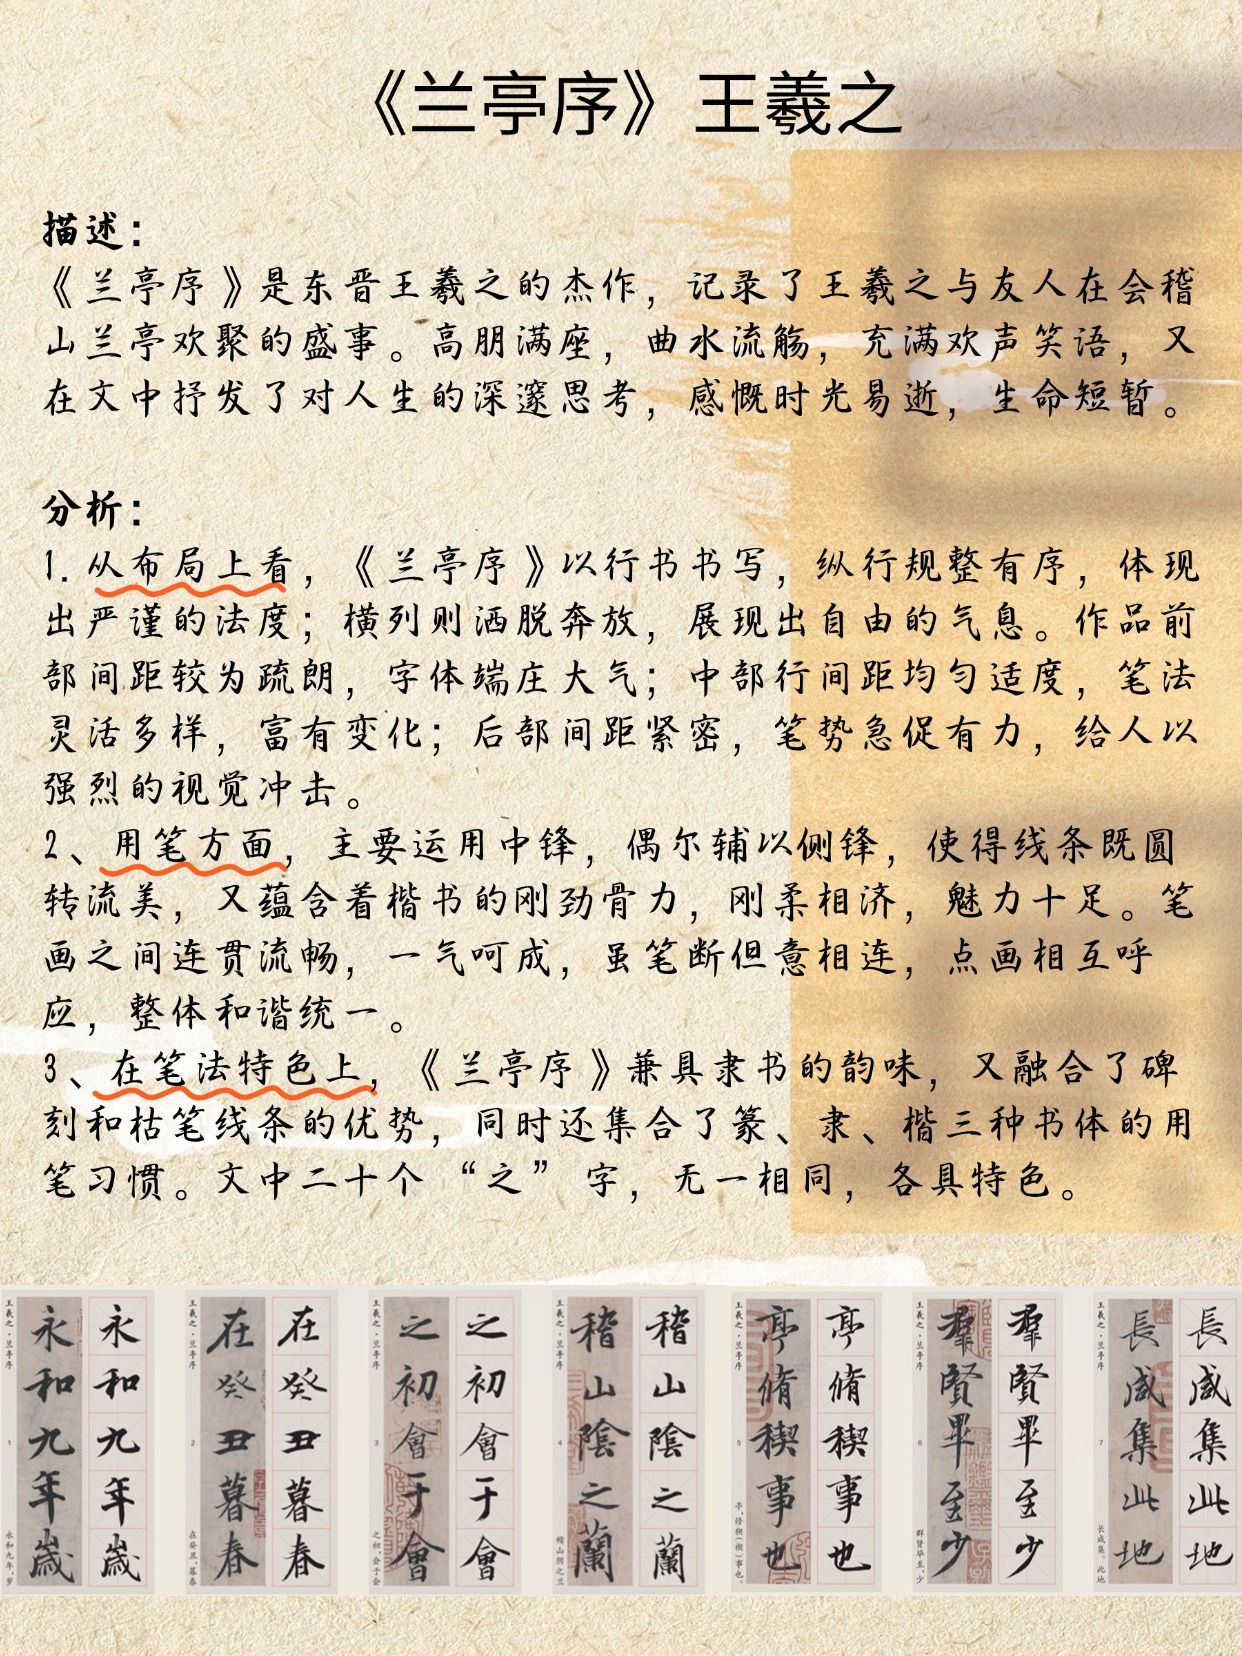 《兰亭序》王羲之
描述：
《兰亭序》是东晋王羲之的杰作，记录了王羲之与友人在会稽
山兰亭欢聚的盛事。高朋满座，曲水流觞，充满欢声笑语，又
在文中抒发了对人生的深邃思考，感慨时光易逝，生命短暂。
分析：
1.从布局上看，《兰亭序》以行书书写，纵行规整有序，体现
出严谨的法度；横列则洒脱奔放，展现出自由的气息。作品前
部间距较为疏朗，字体端庄大气；中部行间距均匀适度，笔法
灵活多样，富有变化；后部间距紧密，笔势急促有力，给人以
强烈的视觉冲击。
2、用笔方面，主要运用中锋，偶尔辅以侧锋，使得线条既圆
转流美，又蕴含着楷书的刚劲骨力，刚柔相济，魅力十足。笔
画之间连贯流畅，一气呵成，虽笔断但意相连，点画相互呼
应，整体和谐统一。
3、在笔法特色上，《兰亭序》兼具隶书的韵味，又融合了碑
刻和枯笔线条的优势，同时还集合了篆、隶、楷三种书体的用
笔习惯。文中二十个“之”字，无一相同，各具特色。
王羲之·兰亭序
1
永和九年，岁
永和九年歲
永和九年歲
王羲之·兰亭序
2
在癸丑，暮春
在癸丑暮春
在癸丑暮春
王羲之·兰亭序
3
之初，会于会
之初會于會
之初會于會
王羲之·兰亭序
4
稽山阴之兰
稽山陰之蘭
稽山陰之蘭
王羲之·兰亭序
5
亭，修禊（禊）事也。
亭脩禊事也
亭脩禊事也
王羲之·兰亭序
6
群贤毕至，少
羣賢畢至少
羣賢畢至少
王羲之·兰亭序
7
长咸集。此地
長咸集此地
長咸集此地